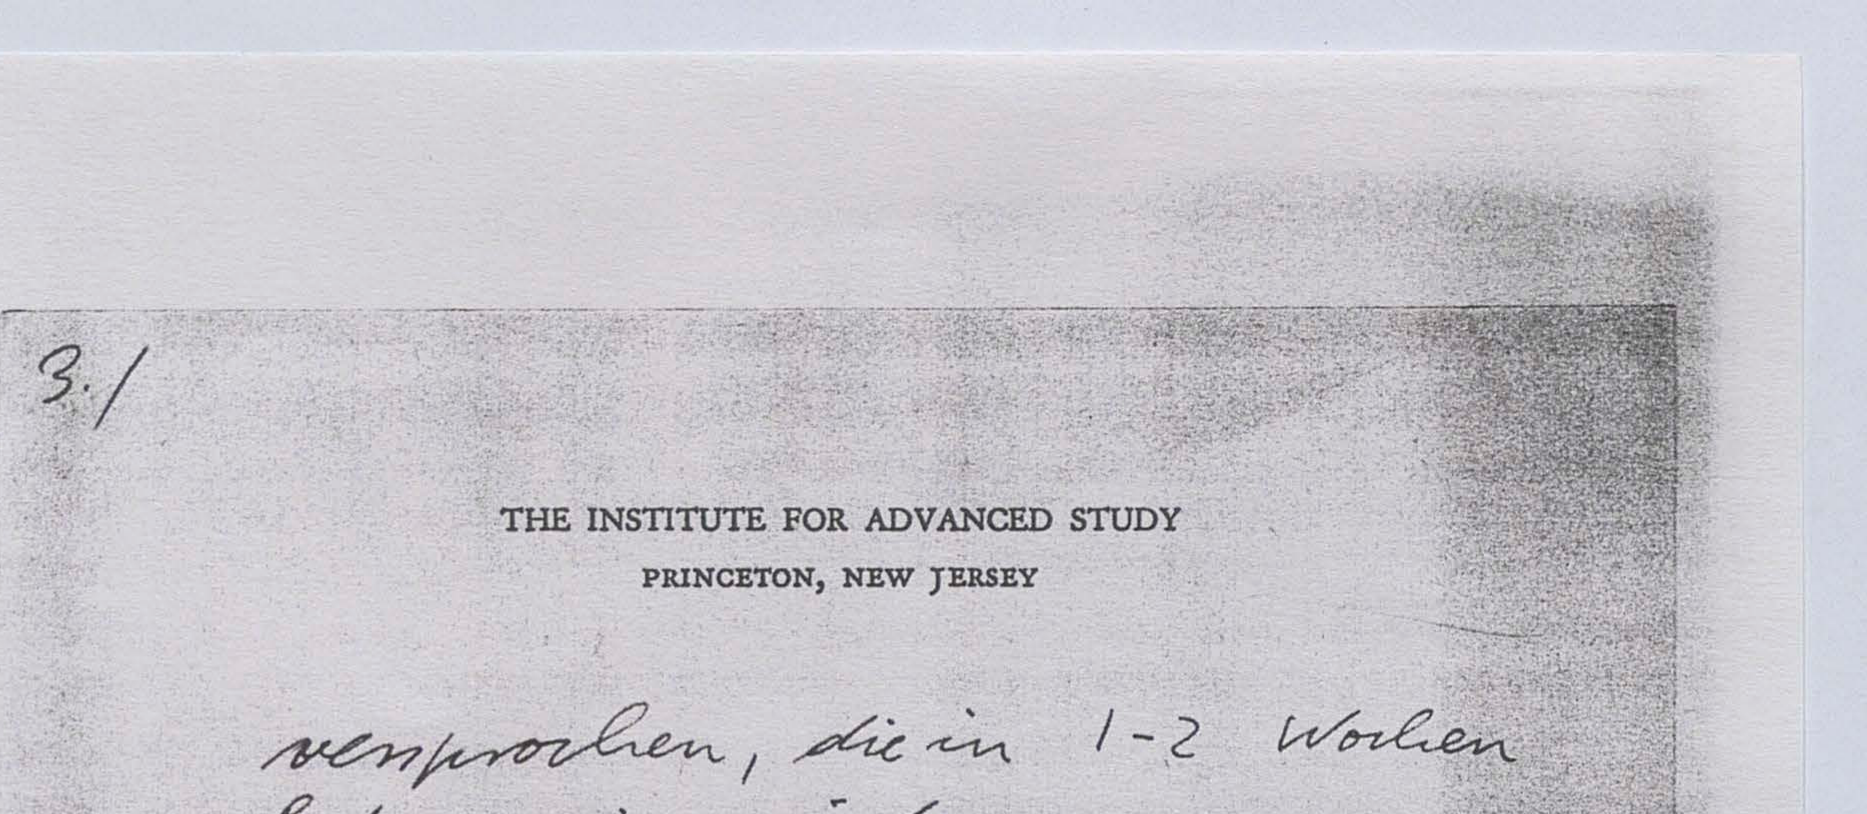 3./
THE INSTITUTE FOR ADVANCED STUDY
PRINCETON, NEW JERSEY
versprochen, die in 1-2 Wochen